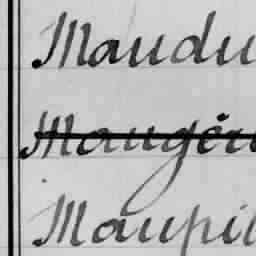 Maudu
Maugèr
Maupil